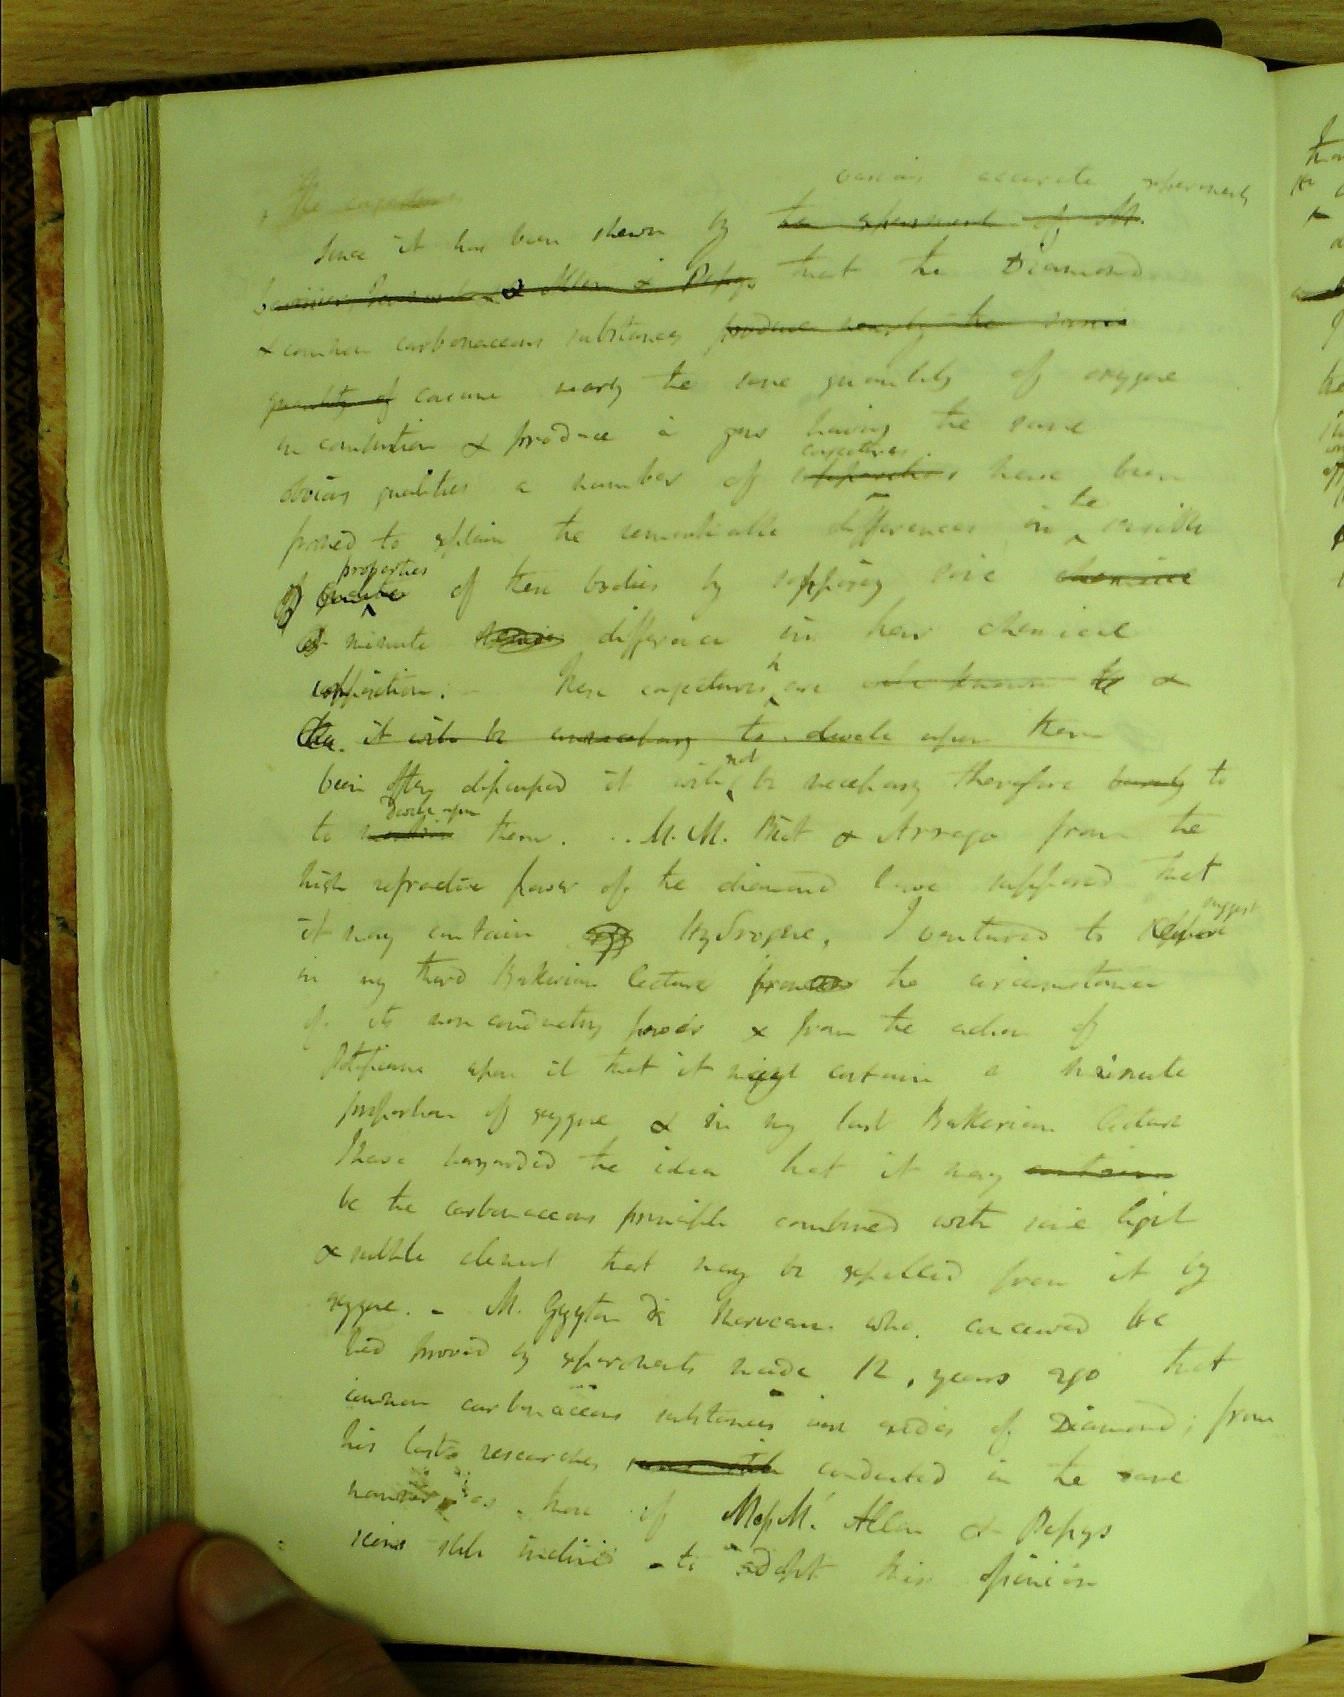 The conjectures
various accurate experiments
Since it has been shewn by the experiments of M.
Lavoisier, & Allen & Pepys that the Diamond
& common carbonaceous substances produce nearly the same
quantity of consume nearly the same quantity of oxygene
in combustion & produce a gas having the same
conjectures
obvious qualities a number of have been
formed to explain the remarkable differences in the sensible
properties
of these bodies by supposing some chemical
minute difference in their chemical
composition. - These conjectures have & 
it will be unnecessary to dwell upon them
been often discussed it will not be necessary therefore barely to
dwell upon
to them. .. M.M. Biot & Arrago from the
high refractive power of the diamond have supposed that
suggest
it may contain Hydrogene, I ventured to
in my third Bakerian lecture from the circumstance
of its non conducting power & from the action of
Potassium upon it that it might contain a minute
proportion of oxygene & in my last Bakerian lecture
I have hazarded the idea that it may contain
be the carbonaceous principle combined with some light
& subtle element that may be expelled from it by
oxygene. - M. Guyton de Morveau who conceived he
had proved by experiments made 12 years ago that
common carbonaceous substances were oxides of Diamond; from
his last researches conducted in the same
manner as those of Mess M. Allen & Pepys
seems still inclined to adopt this opinion